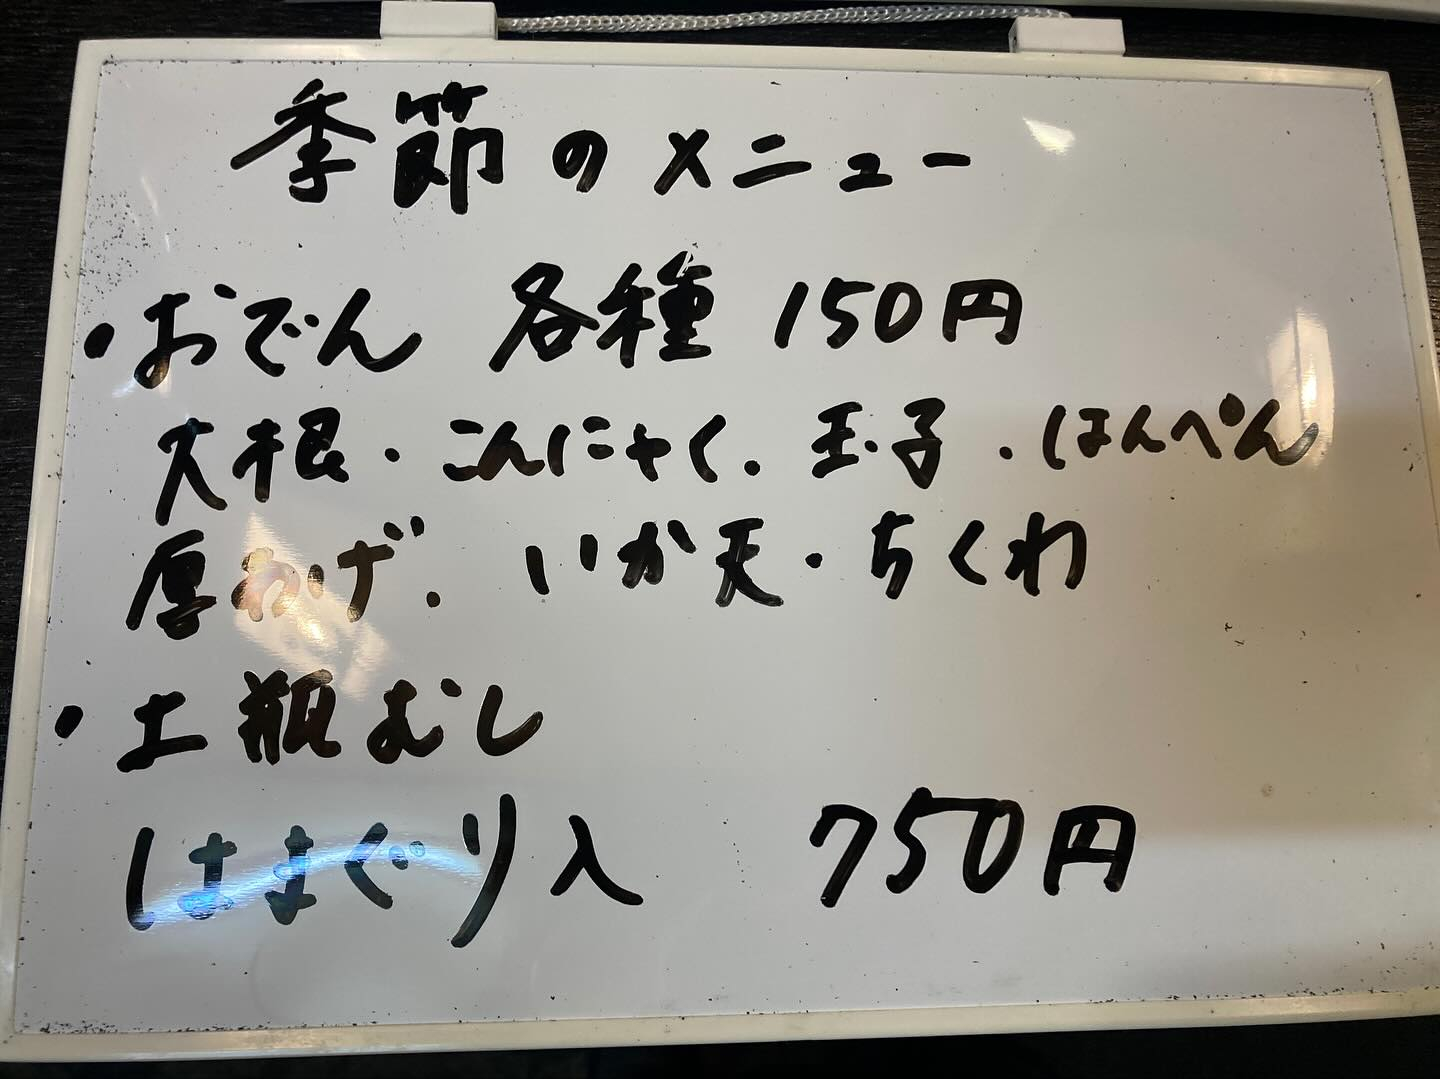 季節のメニュー
・おでん 各種 150円
大根・こんにゃく・玉子・はんぺん
厚あげ・いか天・ちくわ
・土瓶むし
はまぐり入 750円